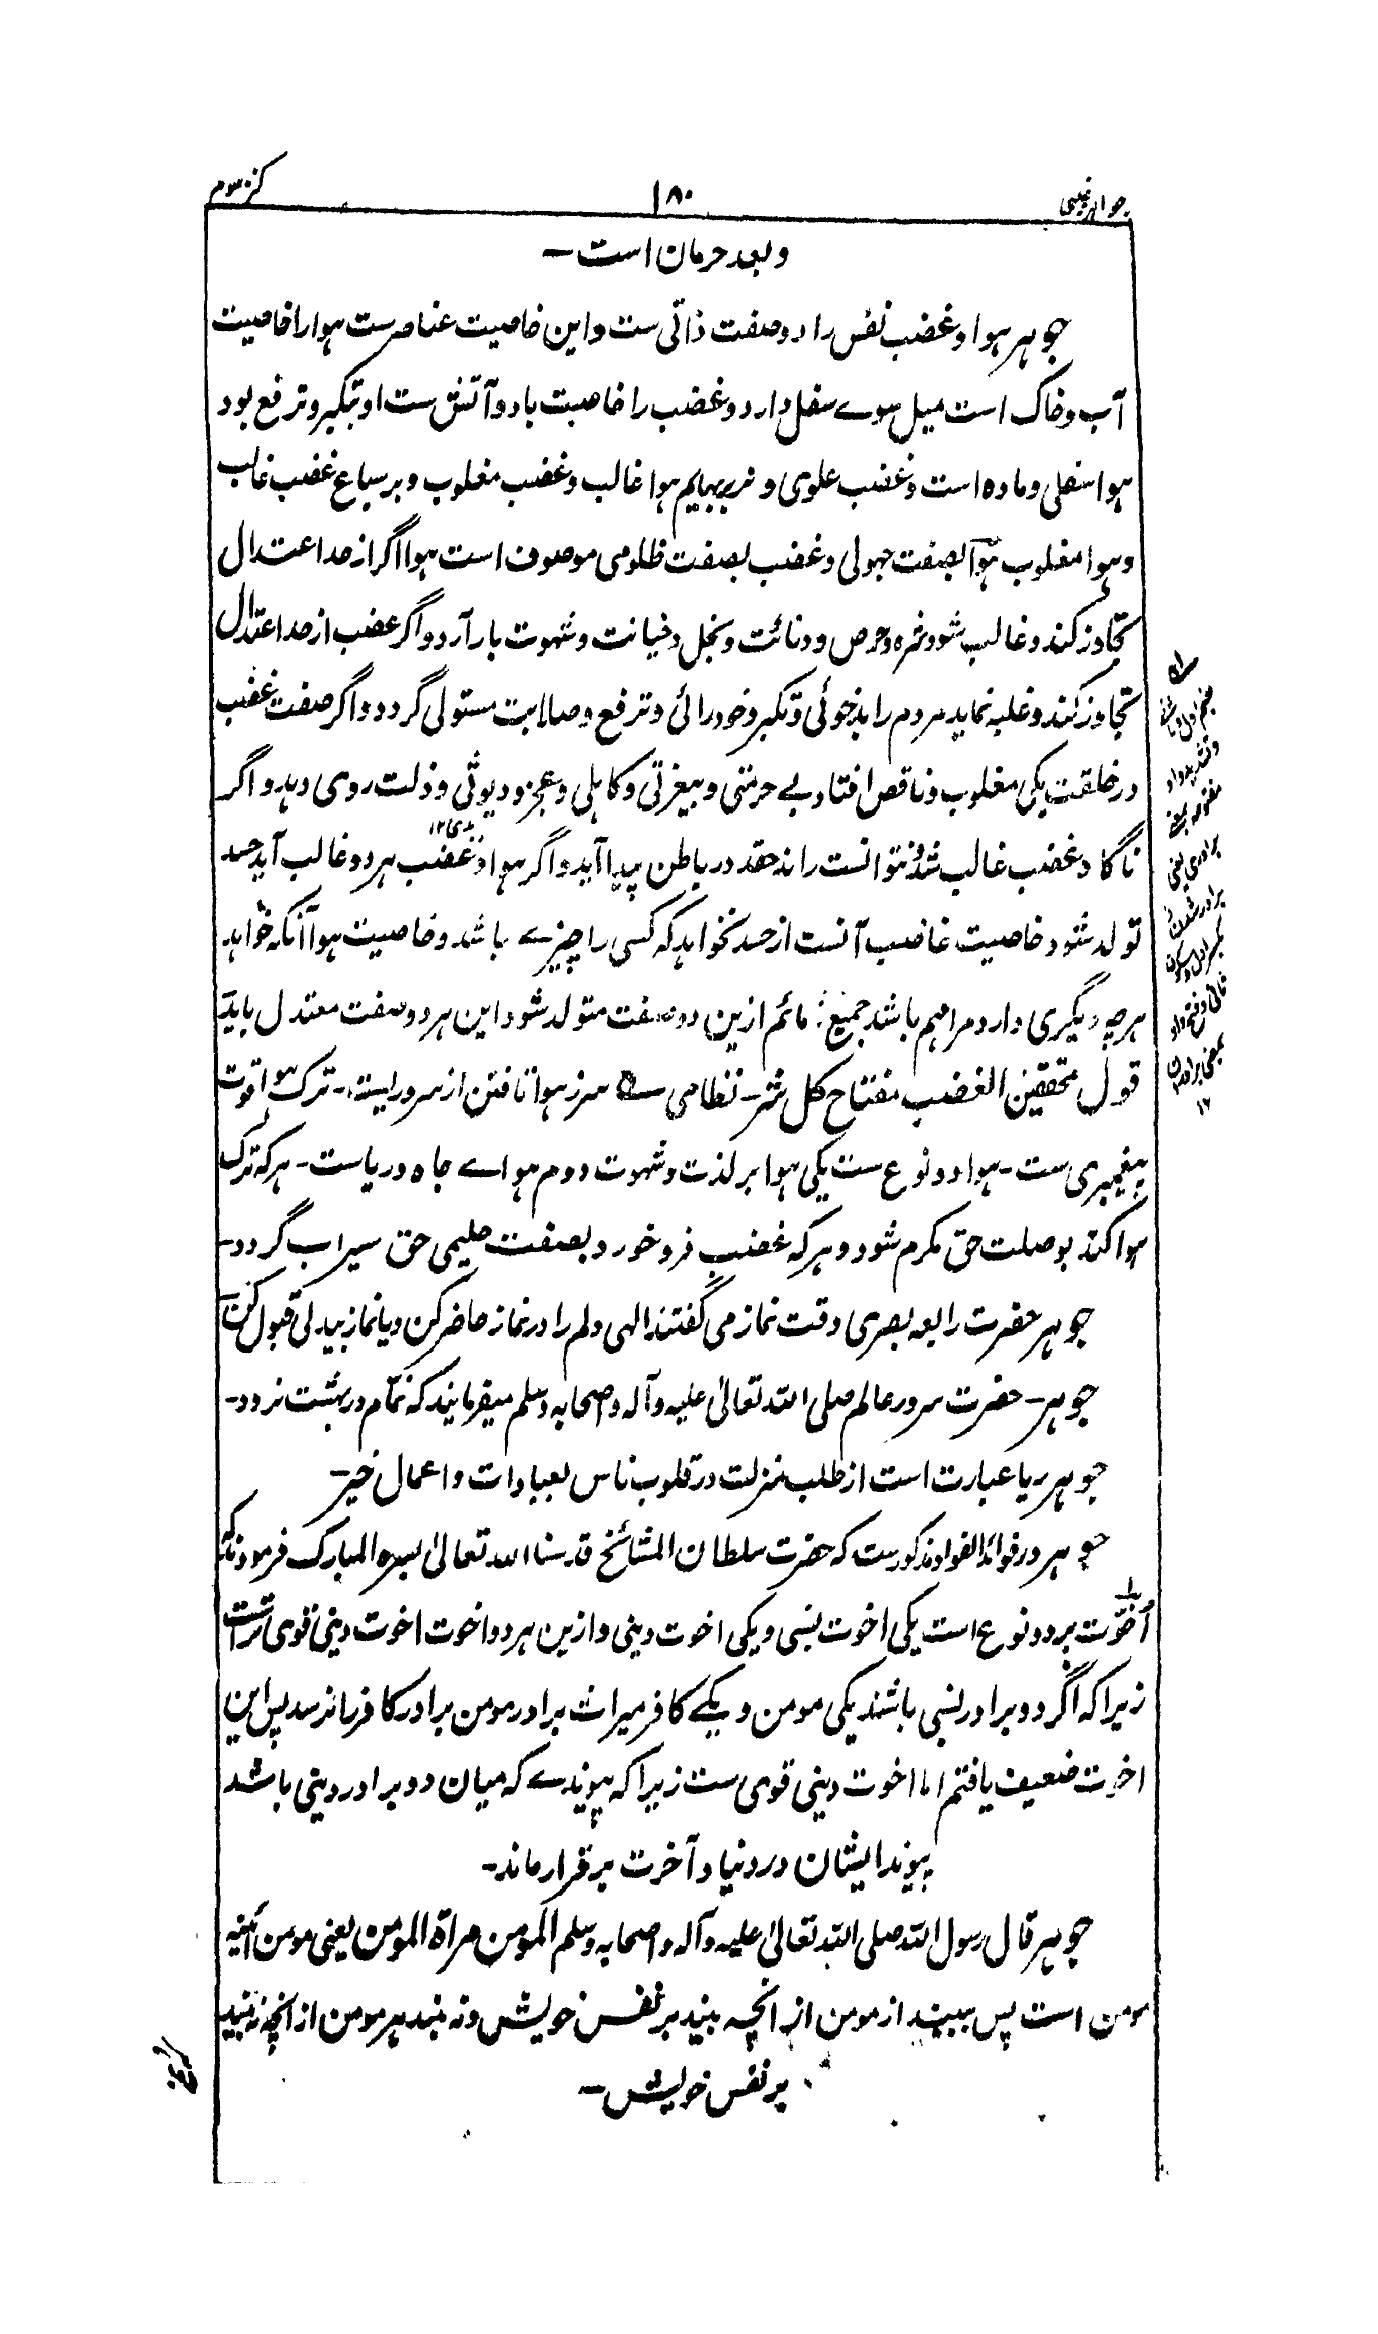 جواہر غیبی
۱۸۰
کنز سوم
و بعد حرمان است –
جوہر ہوا و غضب نفس را دو صفت ذاتی ست و این خاصیت عناصر ست ہوا را خاصیت
آب و خاک است میل سوے سفل دارد و غضب را خاصیت باد و آتش ست او تکبر و ترفع بود
ہوا سفلی و مادہ است و غضب علوی و نر بر بہایم ہوا غالب و غضب مغلوب و بر سباع غضب غالب
و ہوا مغلوب ہوا بصفت جہولی و غضب بصفت ظلومی موصوف است ہوا اگر از حد اعتدال
تجاوز کند و غالب شود شرہ و حرص و دنائت و بخل و خیانت و شہوت بار آرد و اگر غضب از حد اعتدال
تجاوز کند و غلبہ نماید مردم را بدخوئی و تکبر و خودرائی و ترفع و صلابت مستولی گردد و اگر صفت غضب
در خلقت یکی مغلوب و ناقص افتاد بے حرمتی و بیغیرتی و کاہلی و عجز و دیوثی و ذلت روی دہد و اگر
ناگاہ غضب غالب شد و نتوانست راند حقد در باطن پیدا آید و اگر ہوا و غضب ہر دو غالب آید حسد
تولد شود خاصیت غاضب آنست از حسد نخواہد کہ کسی را چیزے باشد و خاصیت ہوا آنکہ خواہد
ہرچہ دیگری دارد مرا ہم باشد جمیع ذمائم ازین دو صفت متولد شود این ہر دو صفت معتدل باید
قول محققین الغضب مفتاح کل شر – نظامی سر ز ہوا تافتن از سروریست – ترک ہوا قوت
پیغمبری ست – ہوا دو نوع ست یکی ہوا بر لذت و شہوت دوم ہواے جاہ و ریاست – ہرکہ ترک
ہوا کند بوصلت حق مکرم شود و ہرکہ غضب فرو خورد بصفت حلیمی حق سیراب گردد –
جوہر حضرت رابعہ بصری وقت نماز می گفتند الہی دلم را در نماز حاضر کن و یا نماز بیدلی قبول کن
جوہر – حضرت سرور عالم صلی اللہ تعالیٰ علیہ و آلہ و اصحابہ وسلم میفرمایند کہ نمّام در بہشت نرود –
جوہر ریا عبارت است از طلب منزلت در قلوب ناس بعبادات و اعمال خیر –
جوہر در فوائد الفواد مذکورست کہ حضرت سلطان المشائخ قدسنا اللہ تعالیٰ بسرہ المبارک فرمودند کہ
اُخوّت بر دو نوع است یکی اخوت نسبی و یکی اخوت دینی و ازین ہر دو اخوت اخوت دینی قوی تر است
زیرا کہ اگر دو برادر نسبی باشند یکی مومن و یکے کافر میراث برادر مومن برادر کافر را نرسد پس این
اخوت ضعیف یافتم اما اخوت دینی قوی ست زیرا کہ پیوندے کہ میان دو برادر دینی باشد
پیوند ایشان در دنیا و آخرت برقرار ماند –
جوہر قال رسول اللہ صلی اللہ تعالیٰ علیہ و آلہ و اصحابہ وسلم المومن مراۃ المومن یعنی مومن آئینہ
مومن است پس ببیند از مومن از انچہ بیند بر نفس خویش و نہ بیند ہر مومن از انچہ نہ بیند
بر نفس خویش –